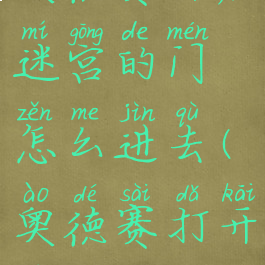 mí gōng de mén
迷宫的门
zěn me jìn qù
怎么进去(
ào dé sài dǎ kāi
奥德赛打开